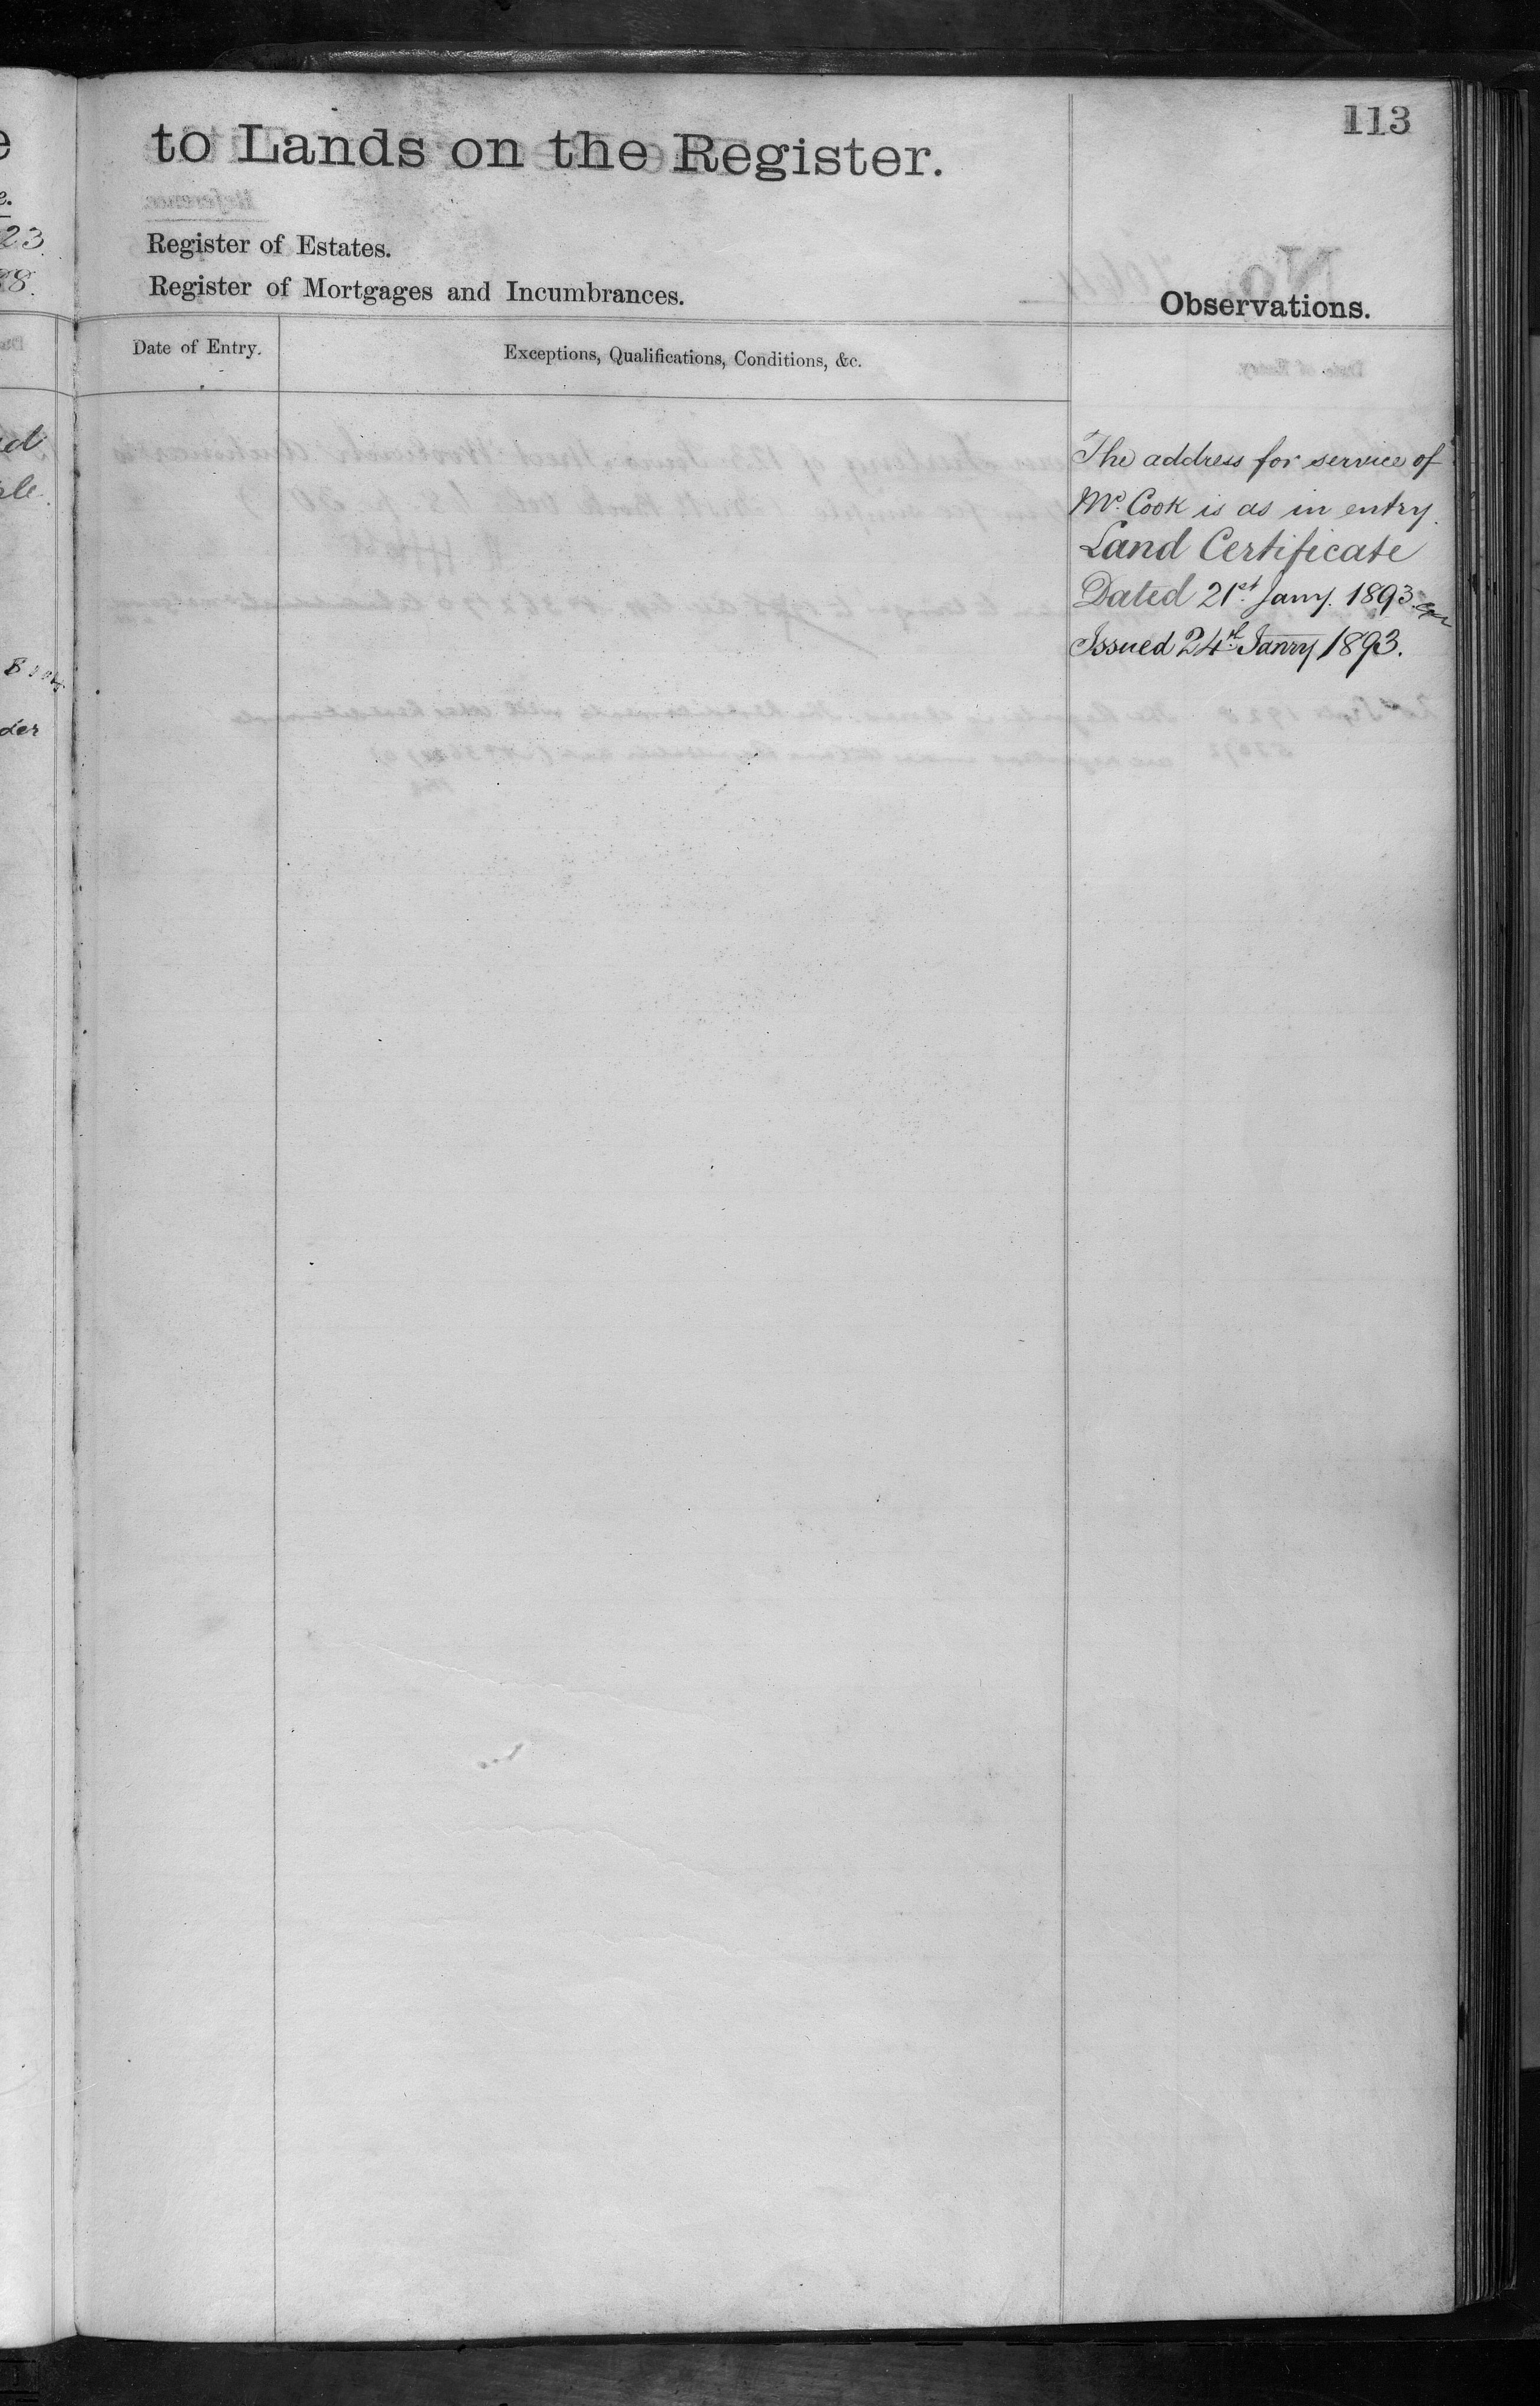 113
to Lands on the Register.
Register of Estates.
Register of Mortgages and Incumbrances.
Observations.
Date of Entry.
Exceptions, Qualifications, Conditions, &c.
The address for service of
Mr. Cook is as in entry.
Land Certificate
Dated 21st Jany. 1893.
Issued 24th Janry 1893.